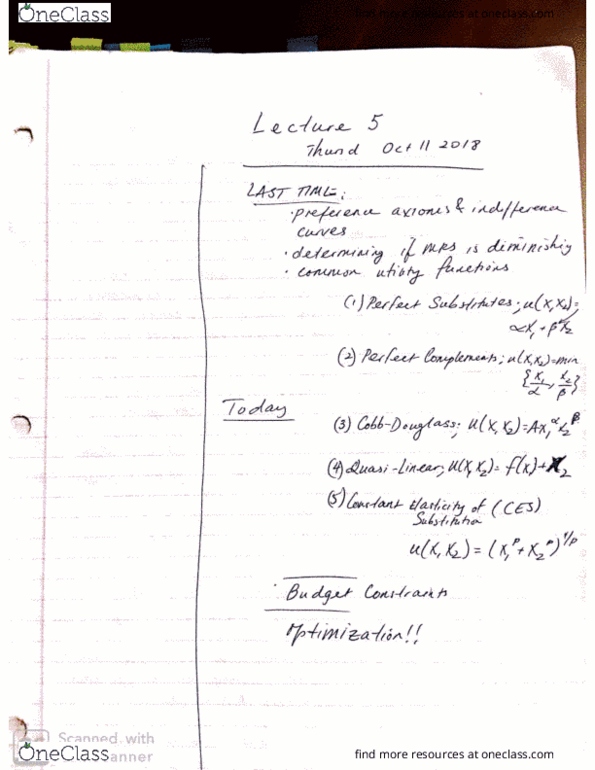 OneClass
find more resources at oneclass.com
Lecture 5
Thursd Oct 11 2018
LAST TIME:
· preference axioms & indifference
curves
· determining if MRS is diminishing
· common utility functions
(1) Perfect Substitutes; u(x, x₂)=
αx₁ + βx₂
(2) Perfect Complements; u(x, x₂)=min
{x₁/α, x₂/β}
Today
(3) Cobb-Douglass; u(x, x₂)=Ax₁^α x₂^β
(4) Quasi-Linear; u(x, x₂)= f(x)+x₂
(5) Constant Elasticity of (CES)
Substitution
u(x, x₂) = (x₁^ρ + x₂^ρ)^1/ρ
· Budget Constraints
Optimization!!
Scanned with
anner
OneClass
find more resources at oneclass.com